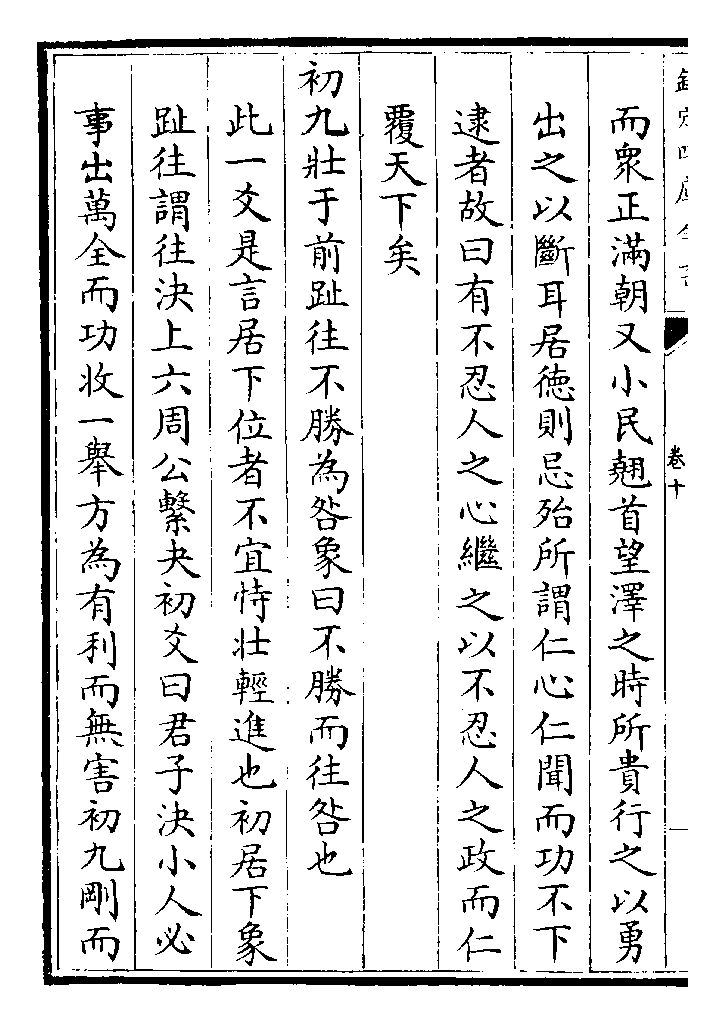 欽定四庫全書
卷十
而衆正滿朝又小民翹首望澤之時所貴行之以勇
出之以斷耳居德則忌殆所謂仁心仁聞而功不下
逮者故曰有不忍人之心繼之以不忍人之政而仁
覆天下矣
初九壯于前趾往不勝為咎象曰不勝而往咎也
此一爻是言居下位者不宜恃壯輕進也初居下象
趾往謂往決上六周公繫夬初爻曰君子決小人必
事出萬全而功收一舉方為有利而無害初九剛而